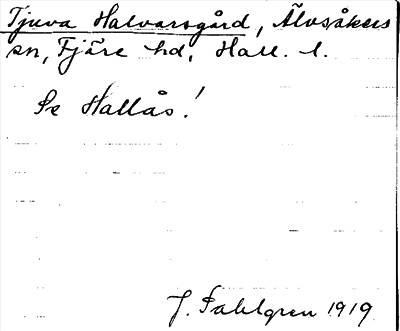 Tjuva Halvarsgård, Älvsåkers
sn, Fjäre hd, Hall. l.
Se Hallås!
J. Sahlgren 1919